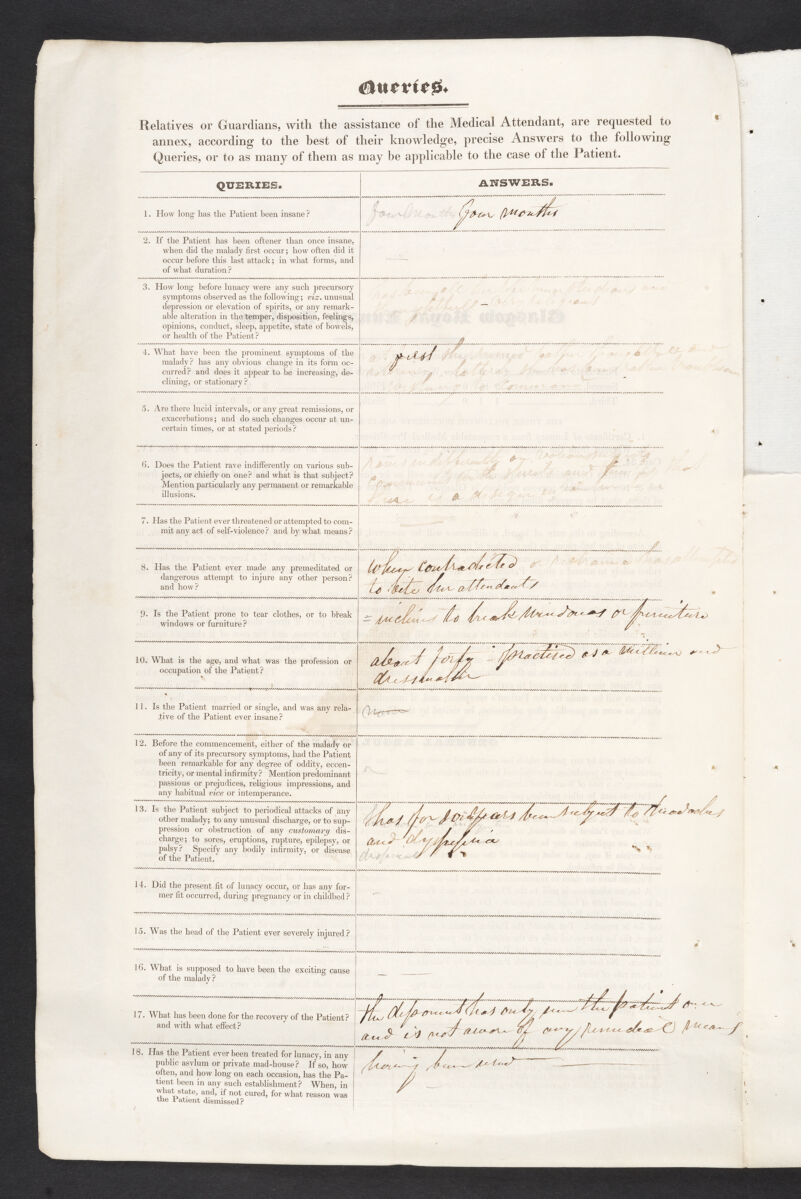 Queries.
Relatives or Guardians, with the assistance of the Medical Attendant, are requested to
annex, according to the best of their knowledge, precise Answers to the following
Queries, or to as many of them as may be applicable to the case of the Patient.
QUERIES.
ANSWERS.
1. How long has the Patient been insane?
four months four months
2. If the Patient has been oftener than once insane,
when did the malady first occur; how often did it
occur before this last attack; in what forms, and
of what duration?
3. How long before lunacy were any such precursory
symptoms observed as the following; viz. unusual
depression or elevation of spirits, or any remark-
able alteration in the temper, disposition, feelings,
opinions, conduct, sleep, appetite, state of bowels,
or health of the Patient?
4. What have been the prominent symptoms of the
malady? has any obvious change in its form oc-
curred? and does it appear to be increasing, de-
clining, or stationary?
5. Are there lucid intervals, or any great remissions, or
exacerbations; and do such changes occur at un-
certain times, or at stated periods?
6. Does the Patient rave indifferently on various sub-
jects, or chiefly on one? and what is that subject?
Mention particularly any permanent or remarkable
illusions.
raves indifferently on
there is a design
7. Has the Patient ever threatened or attempted to com-
mit any act of self-violence? and by what means?
8. Has the Patient ever made any premeditated or
dangerous attempt to injure any other person?
and how?
when contradicted or has attempted
to bite her attendants
9. Is the Patient prone to tear clothes, or to break
windows or furniture?
= inclines to break windows or furniture
10. What is the age, and what was the profession or
occupation of the Patient?
about forty - practised as a milliner and
dressmaker
11. Is the Patient married or single, and was any rela-
tive of the Patient ever insane?
12. Before the commencement, either of the malady or
of any of its precursory symptoms, had the Patient
been remarkable for any degree of oddity, eccen-
tricity, or mental infirmity? Mention predominant
passions or prejudices, religious impressions, and
any habitual vice or intemperance.
13. Is the Patient subject to periodical attacks of any
other malady; to any unusual discharge, or to sup-
pression or obstruction of any customary dis-
charge; to sores, eruptions, rupture, epilepsy, or
palsy? Specify any bodily infirmity, or disease
of the Patient.
has for years been subject to headaches
and dyspepsia
14. Did the present fit of lunacy occur, or has any for-
mer fit occurred, during pregnancy or in childbed?
15. Was the head of the Patient ever severely injured?
16. What is supposed to have been the exciting cause
of the malady?
17. What has been done for the recovery of the Patient?
and with what effect?
the deponent has only seen the patient once
and is not aware of any remedial means
18. Has the Patient ever been treated for lunacy, in any
public asylum or private mad-house? If so, how
often, and how long on each occasion, has the Pa-
tient been in any such establishment? When, in
what state, and, if not cured, for what reason was
the Patient dismissed?
having been used